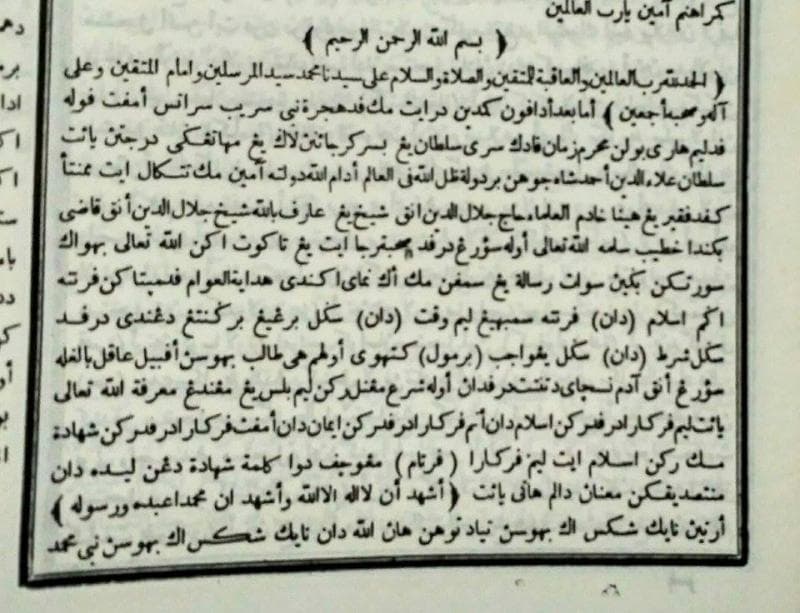 كمراهنم آمين يارب العالمين
﴿ بسم الله الرحمن الرحيم ﴾
﴿ الحمدلله رب العالمين والعاقبة للمتقين والصلاة والسلام على سيدنا محمد سيد المرسلين وامام المتقين وعلى
آله وصحبه أجمعين ﴾ أمابعد أدافون كمدين درايت مك فد هجرة نبي سريب سراتس أمفت فوله
فدليم هاري بولن محرم زمان فادك سري سلطان يڠ بسر كرجائن لاڬ يڠ مها تڠڬي درجتن يائت
سلطان علاءالدين أحمدشاه جوهن بردولة ظل الله في العالم أدام الله دولته آمين مك تتكال ايت ممنتأ
كفد فقير يڠ هينا خادم العلماء حاج جلال الدين انق شيخ يڠ عارف بالله شيخ جلال الدين أنق قاضي
بڬندا خطيب سامه الله تعالى أوله سؤرڠ درفد صحبة راج ايت يڠ تاكوت اكن الله تعالى بهوا اك
سورتكن بڬين سوات رسالة يڠ سمفن مك اك نماي اكندي هداية العوام فدمپتاكن فرتنه
اڬم اسلام (دان) فرتنه سمبهيڠ ليم وقت (دان) سڬل برڠيڠ بركنتڠ دڠندي درفد
سڬل شرط (دان) سڬل يڠواجب (برمول) كتهوي أولهم هي طالب بهوسن أفبيل عاقل بالغله
سؤرڠ أنق آدم نسچاي دتنتت درفدان أوله شرع مڠنل ركن ليم بلس يڠ مڠندڠ معرفة الله تعالى
يائت ليم فركارا درفد ركن اسلام دان أنم فركارا درفد ركن ايمان دان أمفت فركارا درفد ركن شهادة
مك ركن اسلام ايت ليم فركارا (فرتام) مڠوچف دوا كلمة شهادة دڠن ليده دان
منتصديقكن معنان دالم هاتي يائت ﴿ أشهد أن لااله الاالله وأشهد ان محمدا عبده ورسوله ﴾
أرتين نايك شكس اك بهوسن تياد توهن هان الله دان نايك شكس اك بهوسن نبي محمد